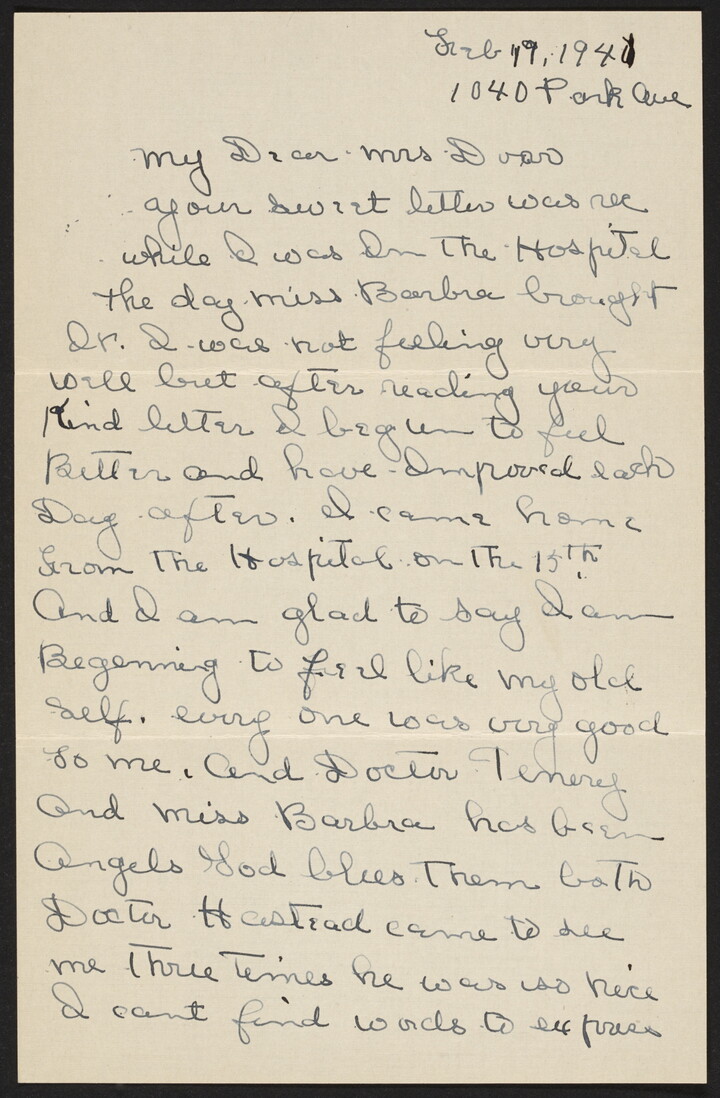 Feb 19, 1941
1040 Park Ave
My Dear Mrs
your sweet letter was rec
while I was In The Hospital
the day miss Barbra brought
It. I was not feeling very
well but after reading your
Kind letter I begun to feel
Better and have Improved each
Day after. I came home
From The Hospital on The 15th
And I am glad to say I am
Begenning to feel like my old
Self. every one was very good
to me, And Doctor Tenery
And miss Barbra has been
Angels God bless Them both
Doctor Hastead came to see
me Three Times he was so nice
I cant find words to express